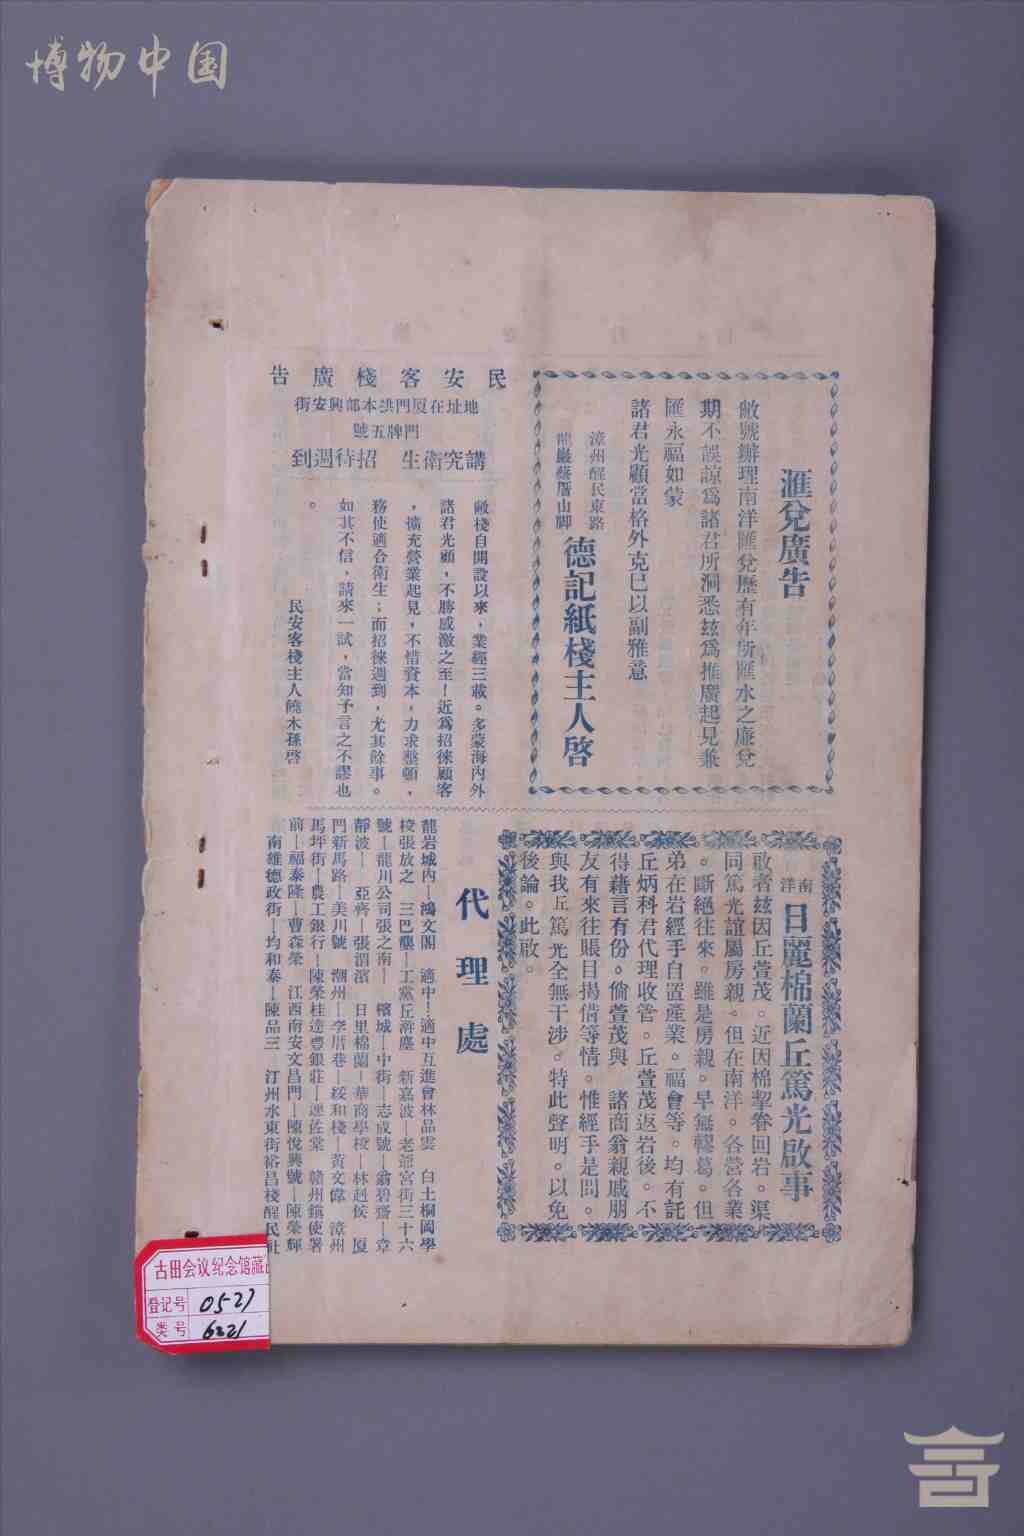 博物中国
滙兌廣告
敝號辦理南洋匯兌歷有年所匯水之廉兌
期不誤諒爲諸君所洞悉玆爲推廣起見兼
匯永福如蒙
諸君光顧當格外克己以副雅意
漳州醒民東路
龍巖藝厝山脚
德記紙棧主人啓
民安客棧廣告
地址在厦門洪本部興安街
門牌五號
講究衛生 招待週到
敝棧自開設以來，業經三載。多蒙海內外
諸君光顧，不勝感激之至！近爲招徠顧客
，擴充營業起見，不惜資本，力求整頓，
務使適合衛生；而招徠週到，尤其餘事。
如其不信，請來一試，當知予言之不謬也
。
民安客棧主人饒木孫啓
南洋 日麗棉蘭丘篤光啟事
敢者玆因丘萱茂。近因棉挈眷回岩。渠
同篤光誼屬房親。但在南洋。各營各業
。斷絕往來。雖是房親。早無轇葛。但
弟在岩經手自置產業。福會等。均有託
丘炳科君代理收管。丘萱茂返岩後。不
得藉言有份。倘萱茂與 諸商翁親戚朋
友有來往賬目揭借等情。惟經手是問。
與我丘篤光全無干涉。特此聲明。以免
後論。此啟。
代理處
龍岩城內—鴻文閣 適中—適中互進會林品雲 白土桐岡學
校張放之 三巴壟—工黨丘滸塵 新嘉波—老爺宮街三十六
號—龍川公司張之南— 檳城—中街—志成號—翁碧齋—章
靜波— 亞齊—張渭濱 日里棉蘭—華商學校—林赳侯 厦
門新馬路—美川號 潮州—李厝巷—綏和棧—黃文偉 漳州
馬坪街—農工銀行—陳榮桂達豐銀莊—連佐棠 贛州鎮使署
前—福泰隆—曹森榮 江西南安文昌門—陳悅興號—陳榮輝
南雄德政街—均和泰—陳品三 汀州水東街裕昌棧醒民社
古田会议纪念馆藏
登记号 0527
类号 6221